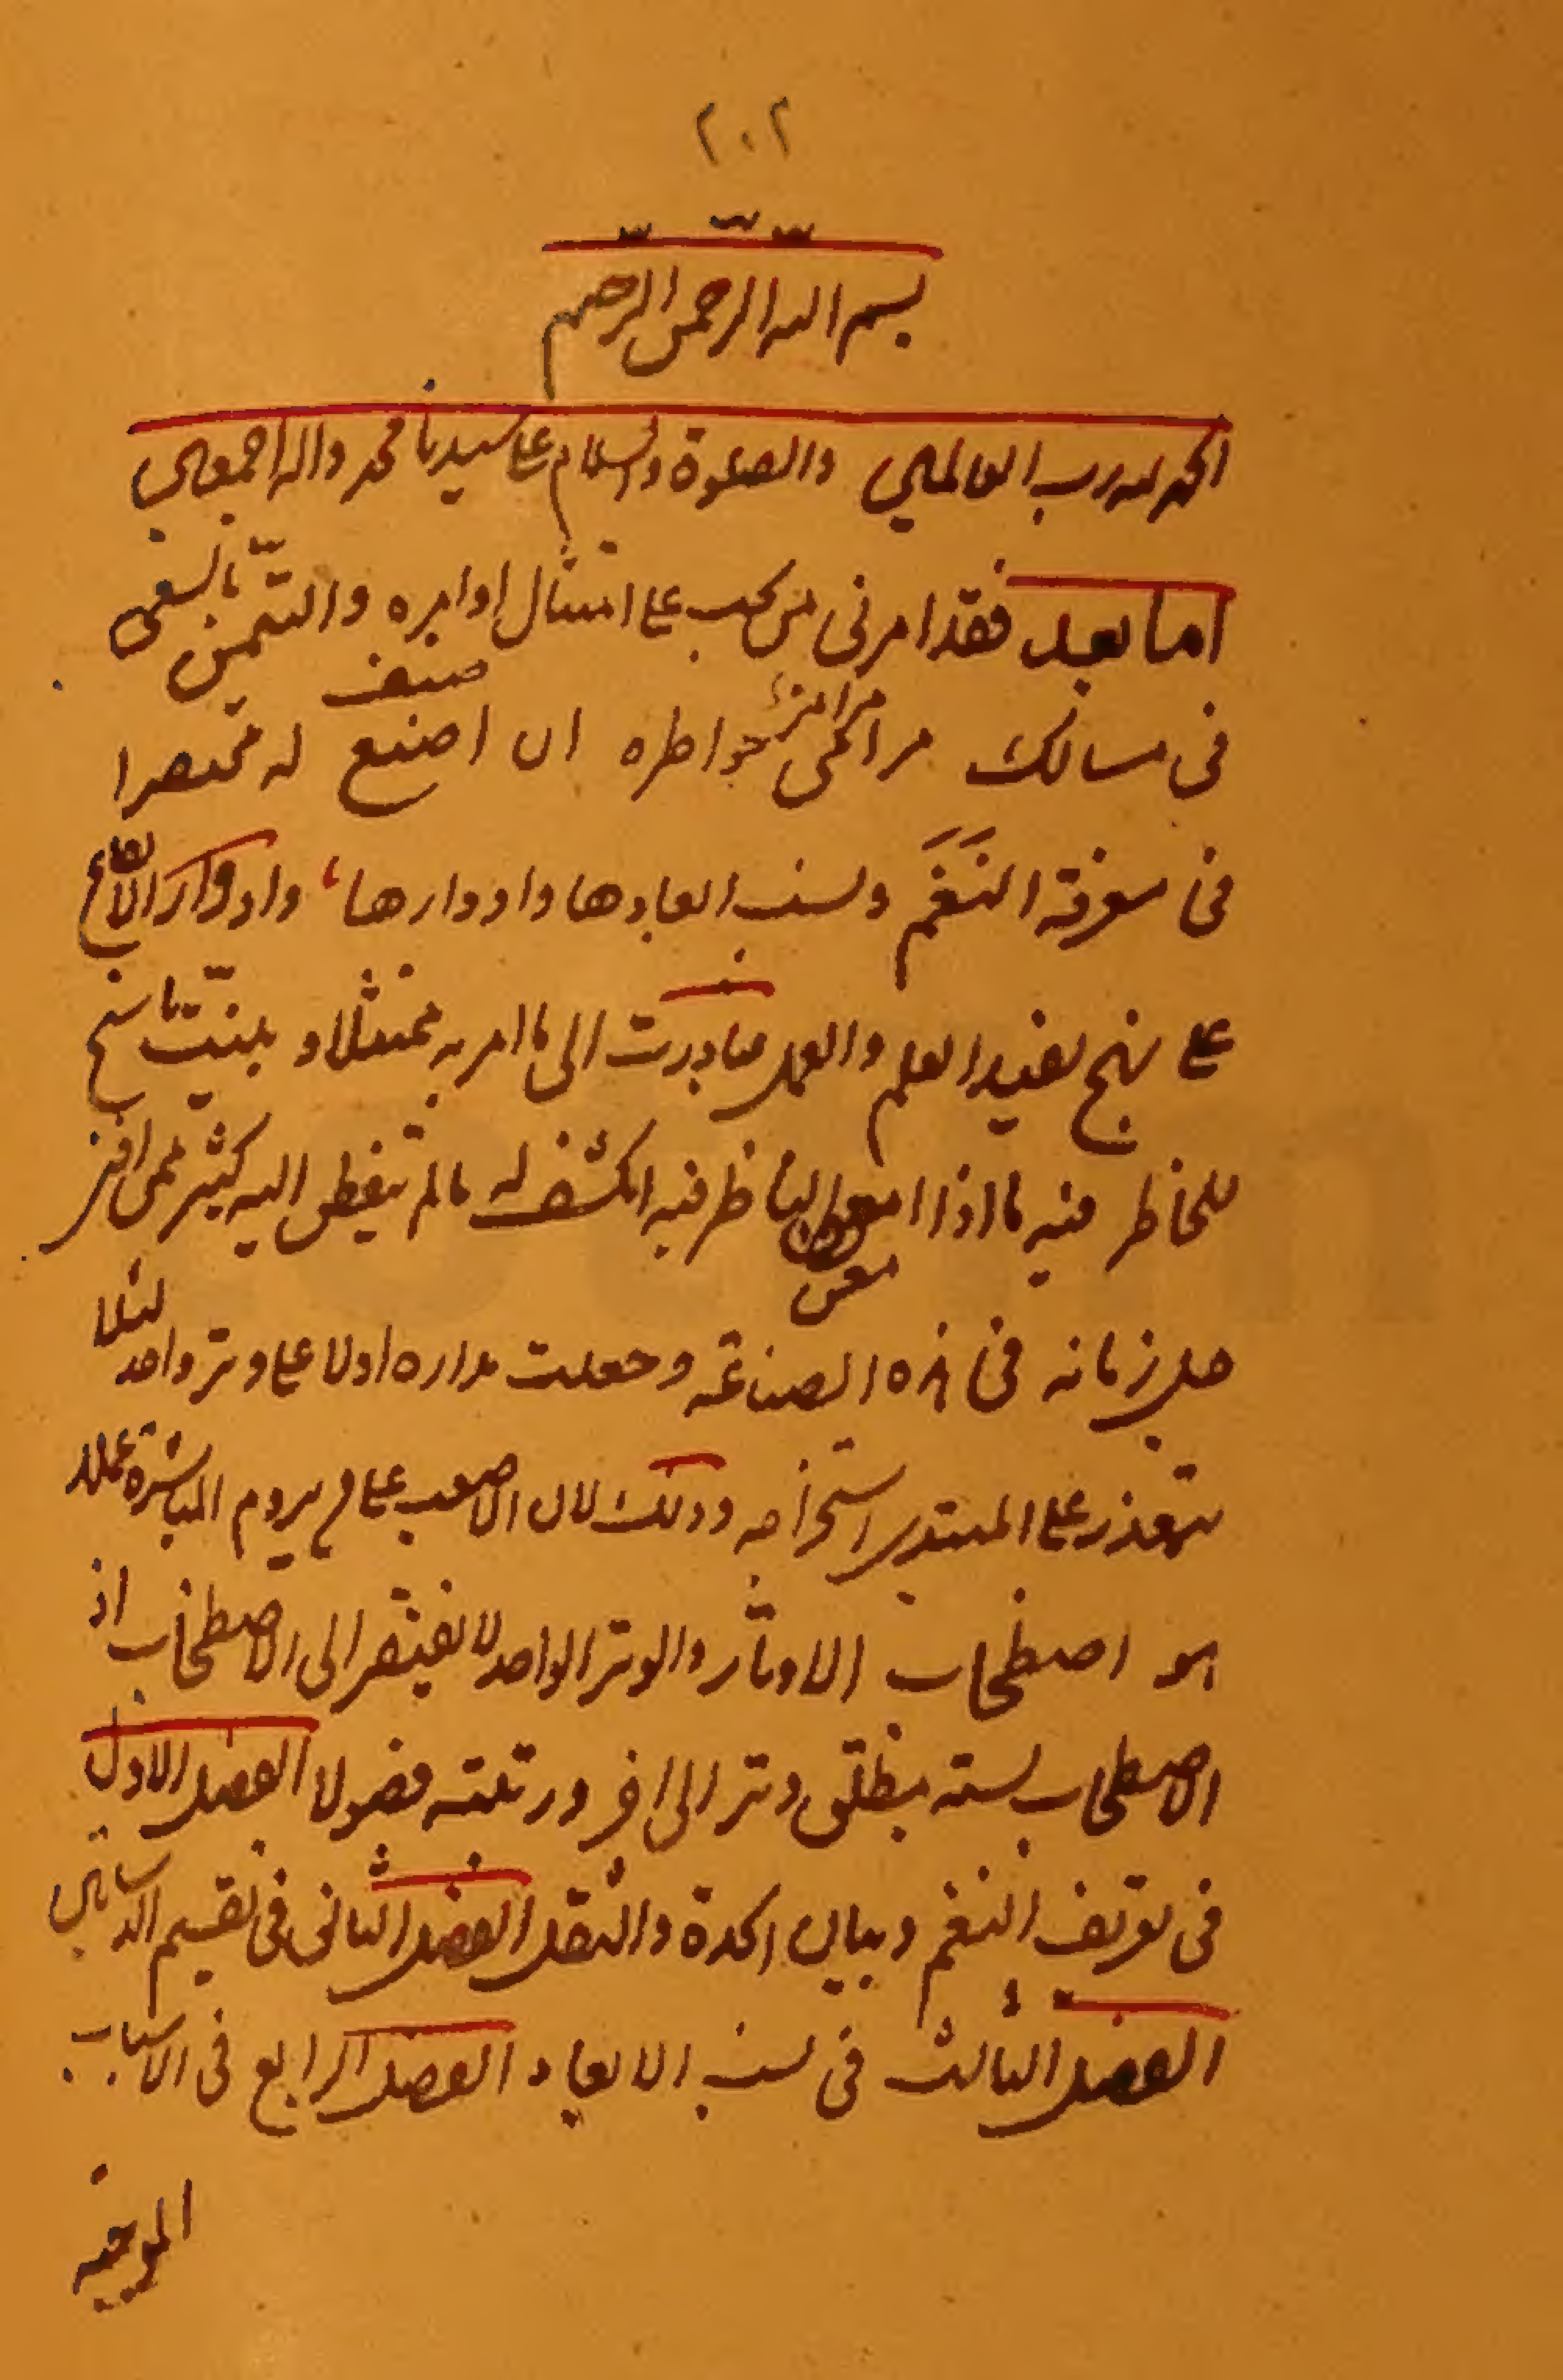 ٢٠٢
بسم الله الرحمن الرحيم
الحمد لله رب العالمين والصلوة والسلام على سيدنا محمد واله اجمعين
اما بعد فقد امرنى من يجب على امتثال اوامره والتيمن بالسعى
صنف
فى مسالك مراكحى خواطره ان اصنع له مختصرا
فى معرفة النَغَم ونسب ابعادها وادوارها، وادوار الايقاع
على نهج يفيد العلم والعمل فبادرت الى ما امر به ممتثلا وبينت ما سنح
للخاطر فيه ما اذا الناظر فيه انكشف له ما لم يتفطن اليه كثير ممن افنى
معن
جل زمانه فى هذه الصناعة وجعلت مداره اولا على وتر واحد لئلا
يتعذر على المبتدى استخراجه وذلك لان الاصعب على من يروم المباشرة عملا
هو اصطخاب الاوتار والوتر الواحد لا يفتقر الى الاصطخاب اذ
الاصطخاب نسبة مطلق وتر الى اخر ورتبته فصولا الفصل الاول
فى تعريف النغم وبيان الحدة والثقل الفصل الثانى فى تقسيم الدساتين
الفصل الثالث فى نسب الابعاد الفصل الرابع فى الاسباب
الموجبة